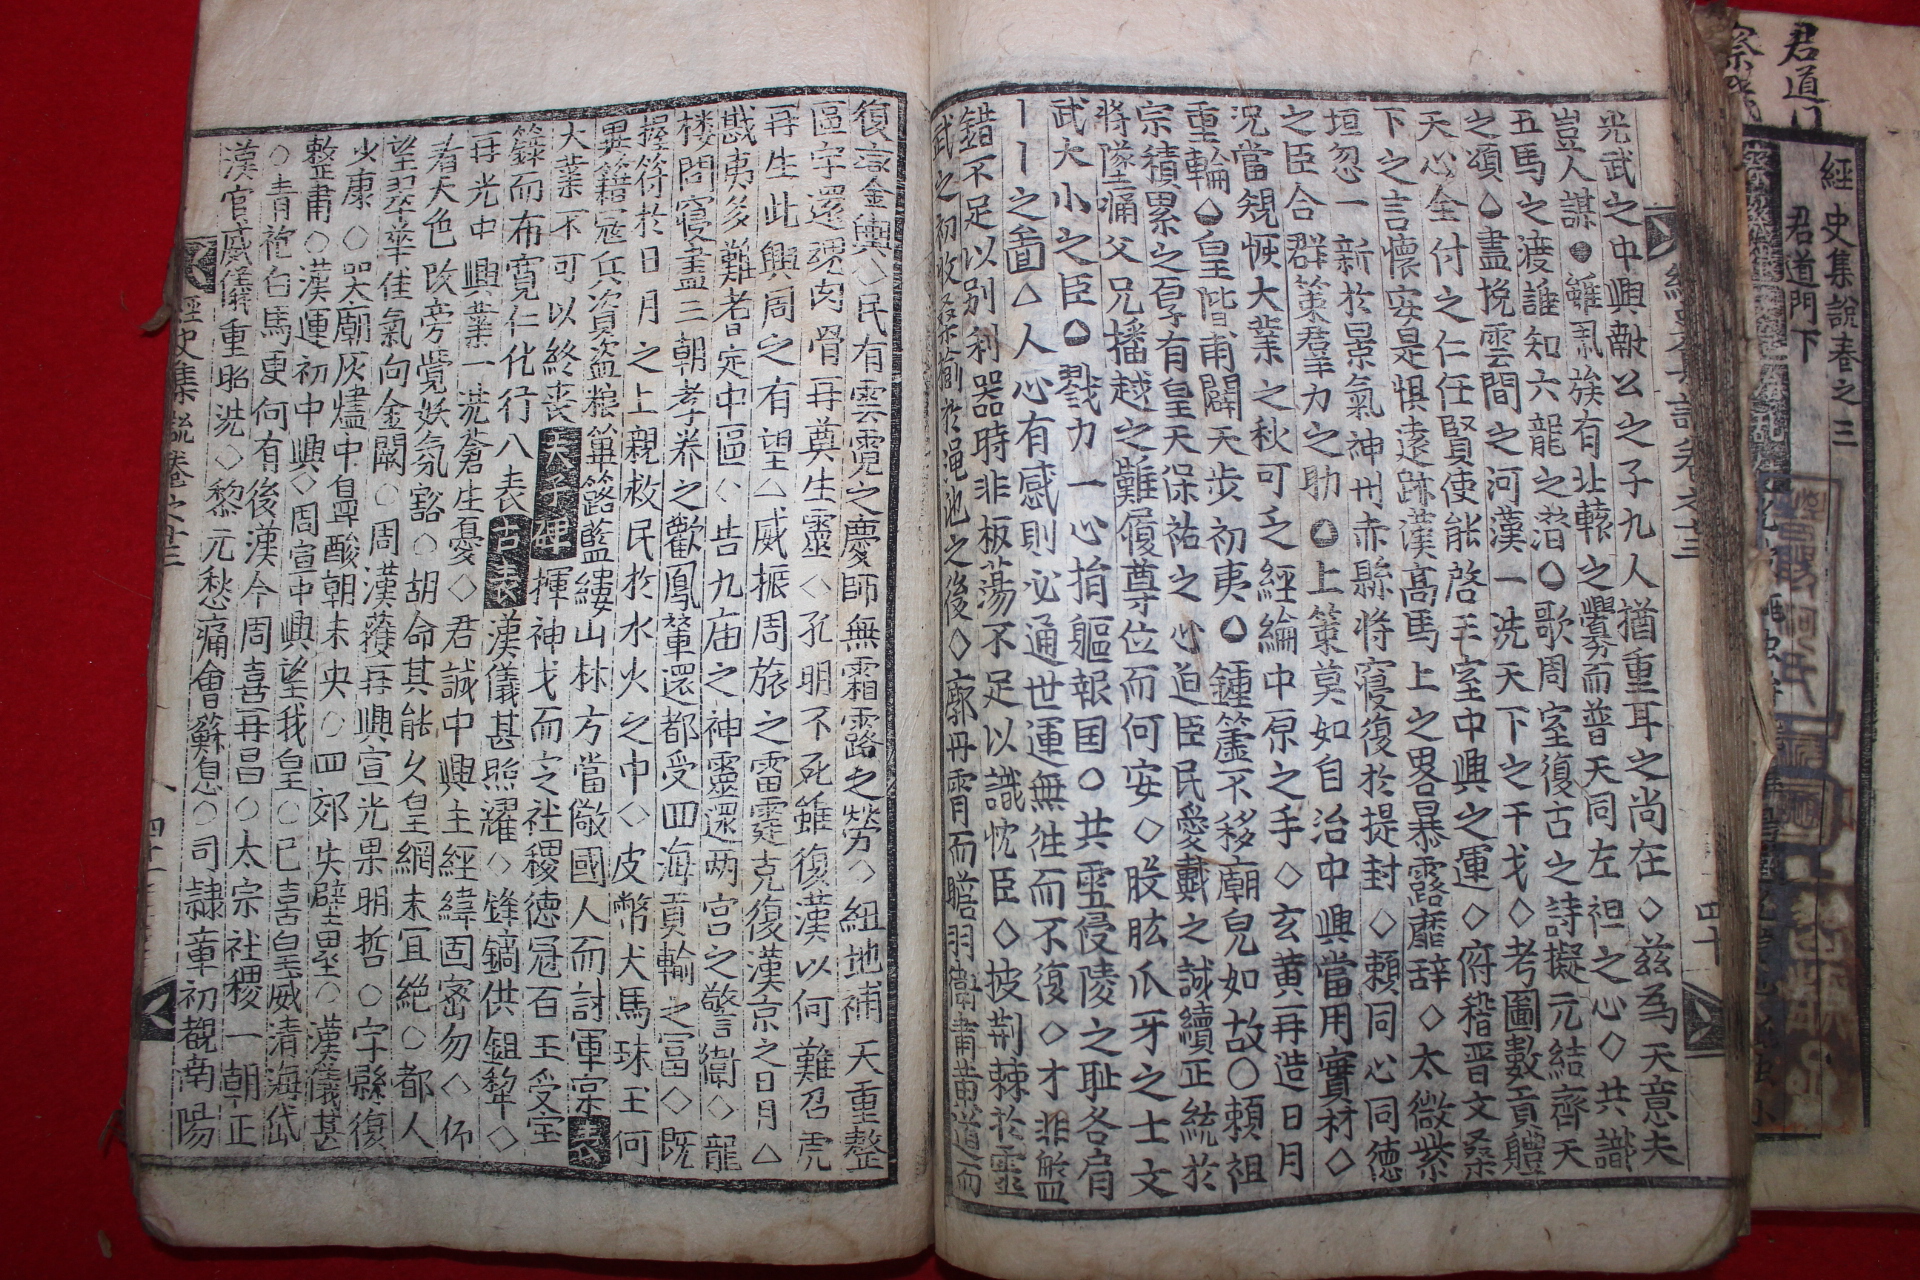 光武之中興敵公之子九人猶重耳之尚在◇茲為天意夫
豈人謀●雖亂蔟有北轅之釁而普天同左袒之心◇共識
五馬之渡誰知六龍之潛○歌周室復古之詩擬元結齊天
之頌△盡挽雲間之河漢一洗天下之干戈◇考圖數貢軆
天心全付之仁任賢使能啓王室中興之運◇府稽晋文桑
下之言懷安是惧遠跡漢高馬上之畧暴露靡辞◇太微紫
垣忽一新於景氣神州赤縣將寢復於提封◇賴同心同德
之臣合群策羣力之助○上策莫如自治中興當用實材◇
况當䂓恢大業之秋可乏經綸中原之手◇玄黄再造日月
重輪○皇階甫闢天步初夷○鍾簴不移廟皃如故○賴祖
宗積累之㫗有皇天保祐之心迫臣民愛戴之誠續正統於
將墜痛父兄播越之難履尊位而何安◇股肱爪牙之士文
武大小之臣○戮力一心捐軀報国○共雪侵陵之耻各肩
丨丨之啚△人心有感則必通世運無徃而不復◇才非盤
錯不足以别利器時非板蕩不足以識忱臣◇披荆棘於靈
武之初收桑榆於澠池之後◇廓丹霄而瞻羽衛肅黄道而
復京金輿◇民有雲霓之慶師無霜露之勞◇紐地補天重整
區宇還魂肉骨再奠生靈◇孔明不死雖復漢以何難召虎
再生此興周之有望△威振周旅之雷霆克復漢京之日月△
戡夷多難者定中區◇告九庙之神靈還两宫之警衞◇龍
楼問寢盡三朝孝养之歡鳳輦還都受四海貢輸之富◇既
握符於日月之上親救民於水火之中◇皮幣犬馬珠玉何
異籍寇兵資盗粮篳路藍縷山林方當儆國人而討軍实 表
大業不可以終丧 天子碑 揮神戈而㝎社稷德冠百王受宝
籙而布寛仁化行八表 古表 漢儀甚照耀◇鋒鏑供鉏犂◇
再光中興業一洗蒼生憂◇君誠中興主經緯固密勿◇仰
看天色改旁覺妖氛豁○胡命其能乆皇網未冝絶○都人
望翠華佳氣向金闕○周漢獲再興宣光果明哲○字縣復
小康○哭廟灰燼中鼻酸朝未央○四郊失壁壘○漢儀甚
整肅○漢運初中興◇周宣中興望我皇○已喜皇威清海岱
○青袍白馬更何有後漢今周喜再昌○太宗社稷一朝正
漢官威儀重昭洗◇黎元愁痛會蘇息○司隷章初覩南陽
經史集說卷之廿三
四十
四十一
君道门
經史集說卷之三
君道門下